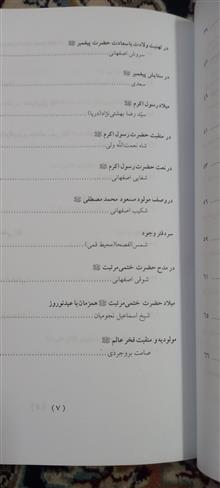 در تهنیت ولادت باسعادت حضرت پیغمبر ﷺ
سروش اصفهانی
در ستایش پیغمبر ﷺ
سعدی
میلاد رسول اکرم ﷺ
سیّد رضا بهشتی‌نژاد (دریا)
در منقبت حضرت رسول اکرم ﷺ
شاه نعمت‌الله ولی
در نعت حضرت رسول اکرم ﷺ
شفایی اصفهانی
در وصف مولود مسعود محمد مصطفی ﷺ
شکیب اصفهانی
سر دفتر وجود
شمس‌الفصحا (محیط قمی)
در مدح حضرت ختمی مرتبت ﷺ
شوقی اصفهانی
میلاد حضرت ختمی مرتبت ﷺ همزمان با عید نوروز
شیخ اسماعیل نجومیان
مولودیه و منقبت فخر عالم ﷺ
صامت بروجردی
(۷)